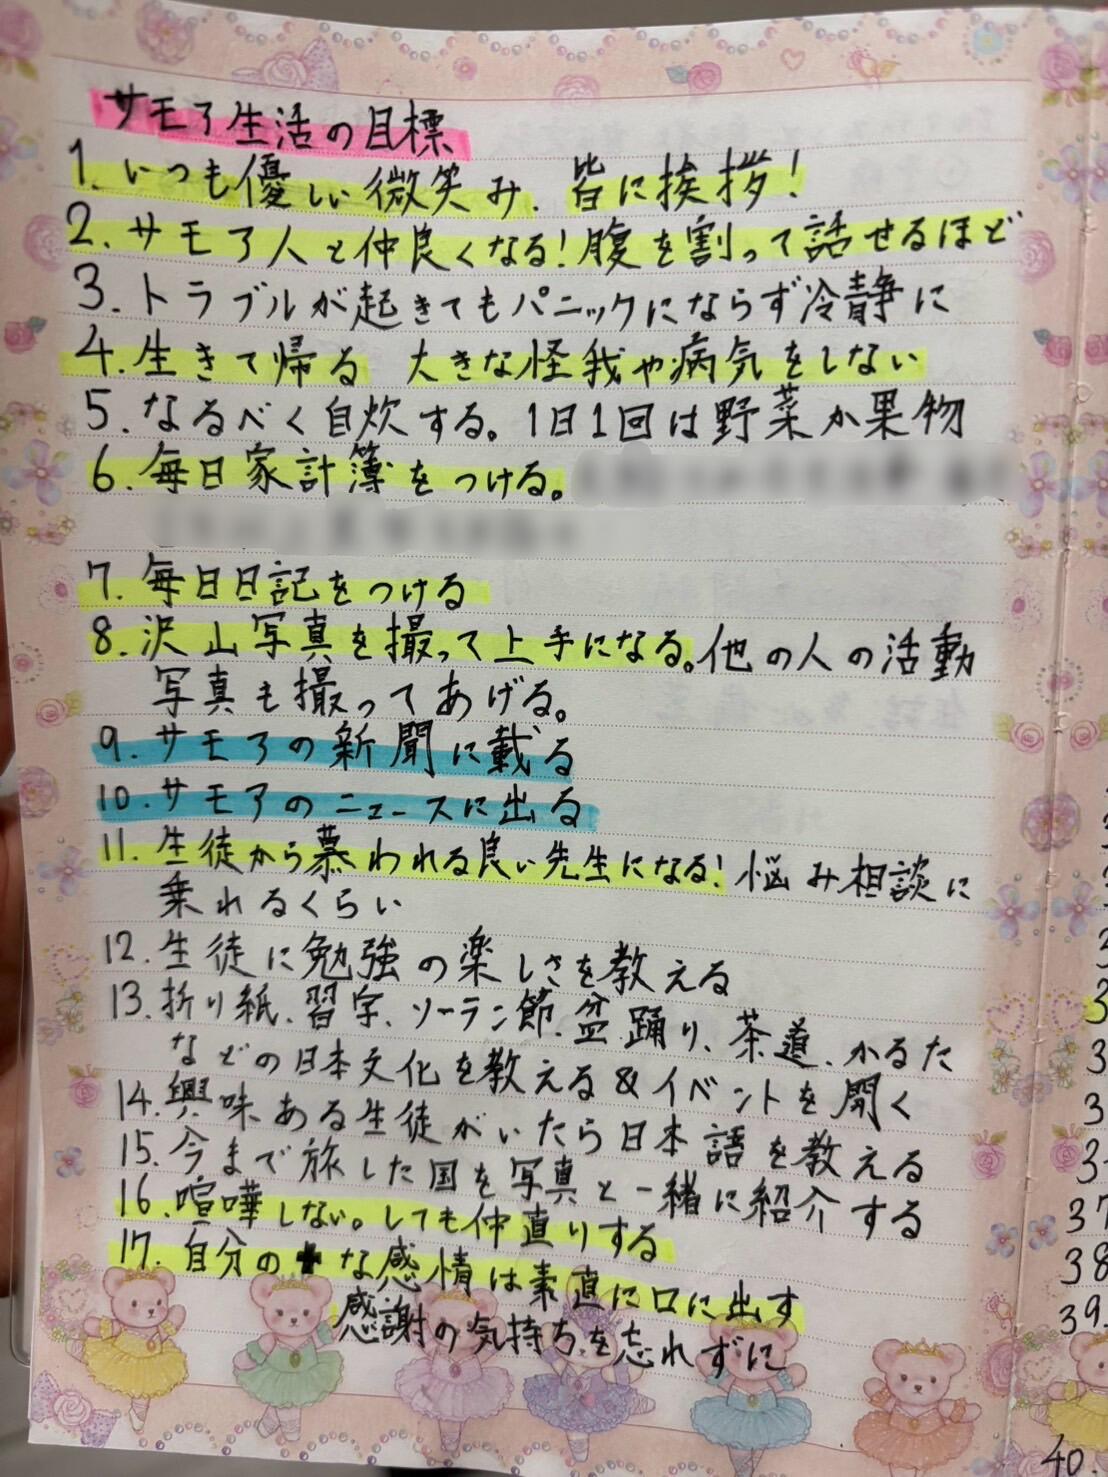 サモア生活の目標
1. いつも優しい微笑み、皆に挨拶!
2. サモア人と仲良くなる!腹を割って話せるほど
3. トラブルが起きてもパニックにならず冷静に
4. 生きて帰る 大きな怪我や病気をしない
5. なるべく自炊する。1日1回は野菜か果物
6. 毎日家計簿をつける。
7. 毎日日記をつける
8. 沢山写真を撮って上手になる。他の人の活動
写真も撮ってあげる。
9. サモアの新聞に載る
10. サモアのニュースに出る
11. 生徒から慕われる良い先生になる!悩み相談に
乗れるくらい
12. 生徒に勉強の楽しさを教える
13. 折り紙、習字、ソーラン節、盆踊り、茶道、かるた
などの日本文化を教える&イベントを開く
14. 興味ある生徒がいたら日本語を教える
15. 今まで旅した国を写真と一緒に紹介する
16. 喧嘩しない。しても仲直りする
17. 自分の な感情は素直に口に出す
感謝の気持ちを忘れずに
37
38
39.
40.